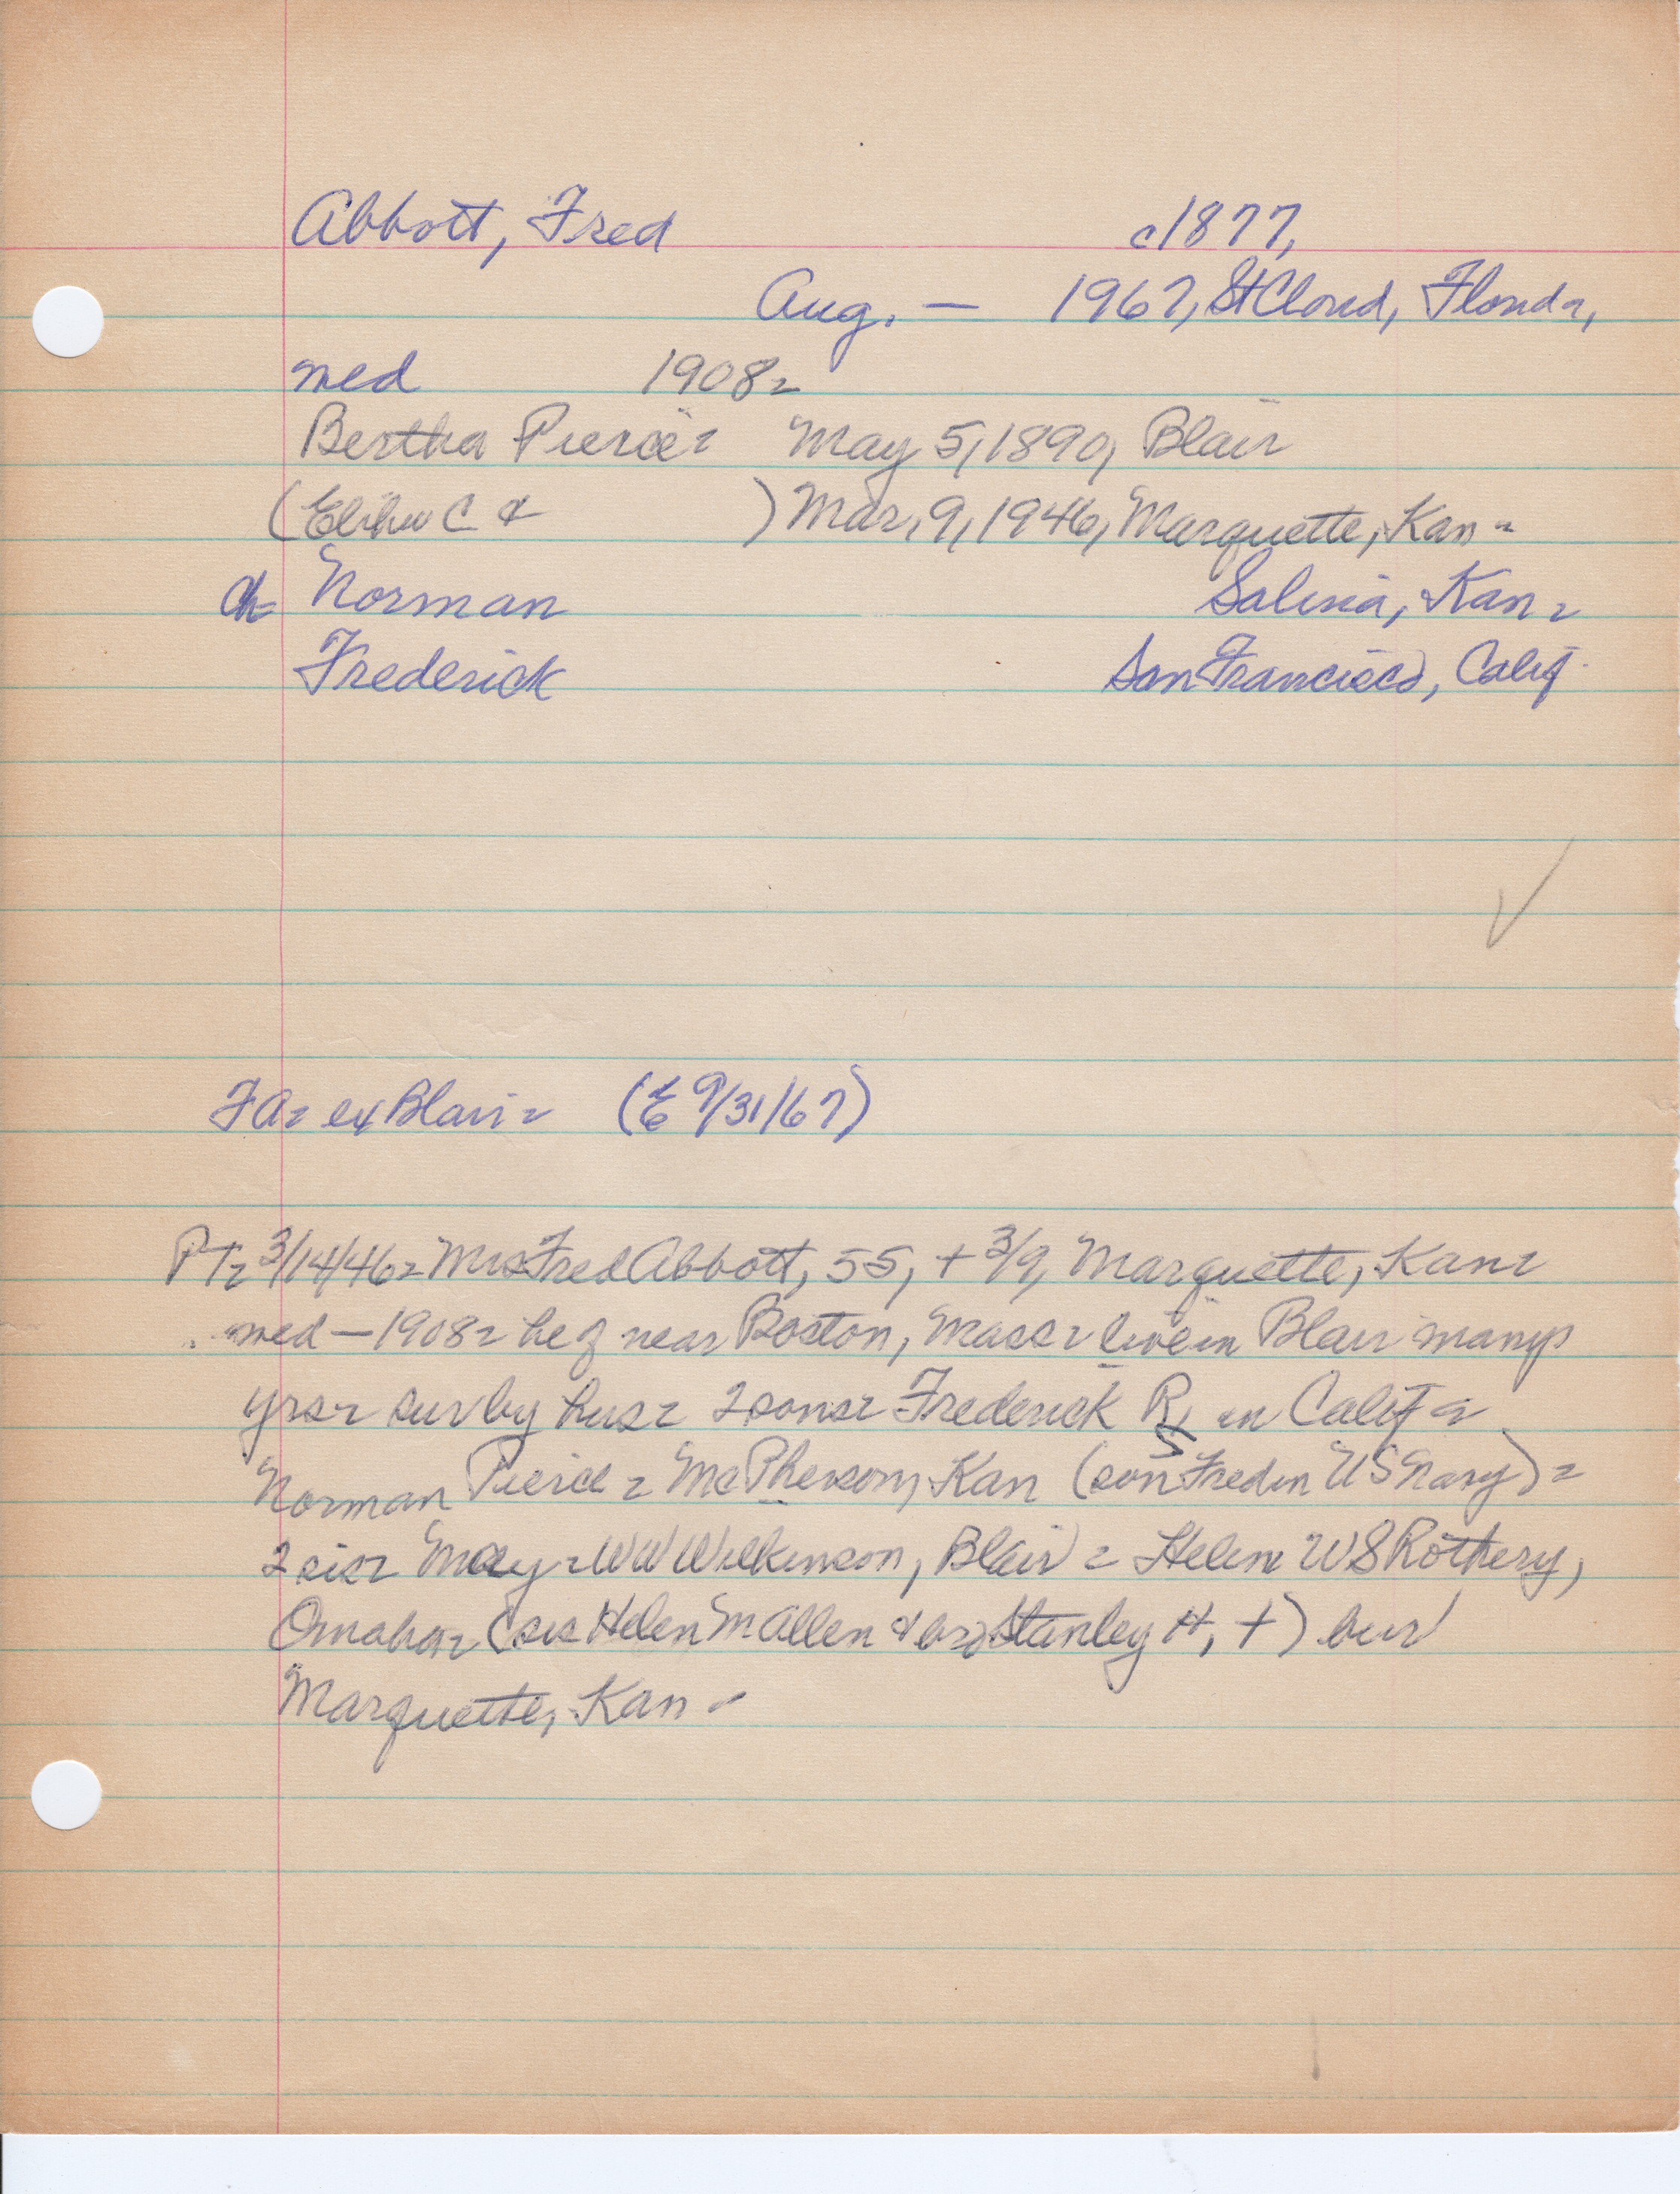 Abbott, Fred c1877,
Aug. — 1967, St Cloud, Florida,
med 1908-
Bertha Pierce- May 5, 1890, Blair
(Elihu C & ) Mar, 9, 1946, Marquette, Kan-
ch- Norman Salina, Kan-
Frederick San Francisco, Calif.
FA- ex Blair- (E 9/31/67)
PT- 3/14/46- Mrs Fred Abbott, 55, + 3/9, Marquette, Kan-
med — 1908- he of near Boston, Mass- live in Blair many
yrs- sur by hus- 2 sons- Frederick R, in Calif -
Norman Pierce - McPherson, Kan (son Fred in US Navy) -
2 sis- May - W W Wilkinson, Blair - Helen W S Rothery,
Omaha- (sis Helen M Allen & bro Stanley H, +) bur
Marquette, Kan -